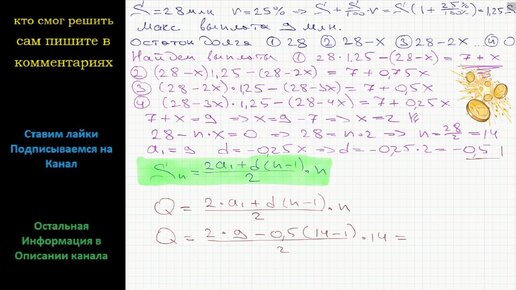 кто смог решить
сам пишите в
комментариях
Ставим лайки
Подписываемся на
Канал
Остальная
Информация в
Описании канала
S=28 млн r=25% => S + S/100·r = S(1 + 25%/100%) = 1,25S
Макс выплата 9 млн.
Остаток долга ① 28 ② 28-x ③ 28-2x ... ⓝ 0
Найдем выплаты ① 28·1,25-(28-x) = 7+x
② (28-x)1,25-(28-2x) = 7+0,75x
③ (28-2x)·1,25-(28-3x) = 7+0,5x
④ (28-3x)·1,25-(28-4x) = 7+0,25x
7+x=9 => x=9-7 => x=2
28-n·x=0 => 28=n·2 => n=28/2=14
a₁=9 d=-0,25x => d=-0,25·2=-0,5
Sₙ = (2a₁+d(n-1))/2 · n
Q = (2·a₁+d(n-1))/2 · n
Q = (2·9-0,5(14-1))/2 · 14 =